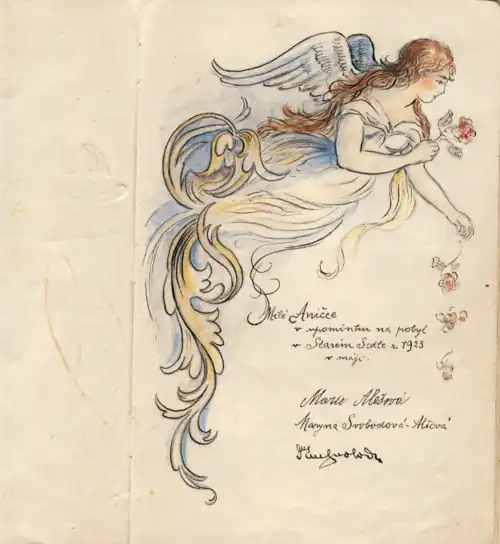 Milé Aničce
v upomínku na pobyt
v Starém Sedle r. 1923
v máji.
Marie Alešová
Maryna Svobodová-Alšová